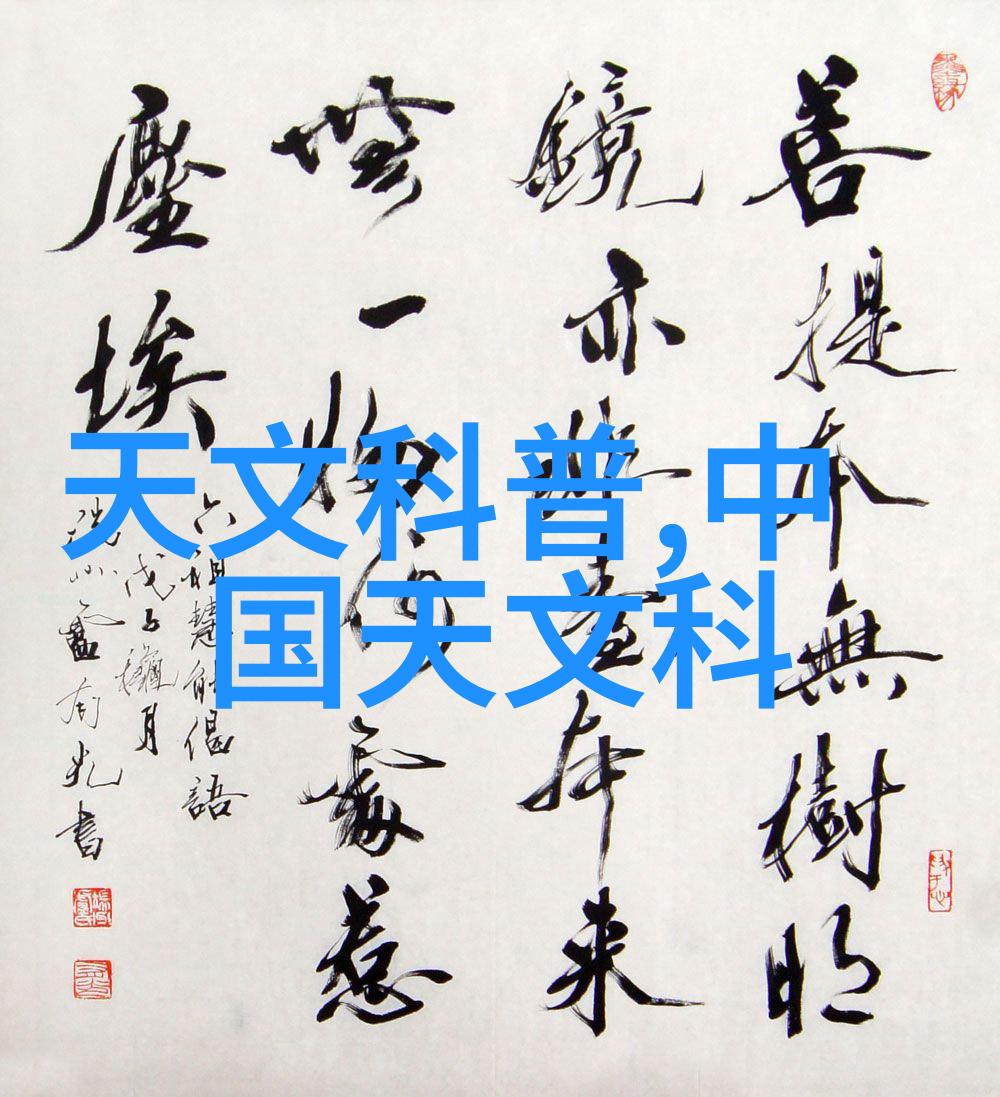 天文科普,中
国天文科
菩提本無樹明
鏡亦非臺本来
無一物何處惹
塵埃
六祖慧能偈語
戊子穐月
书